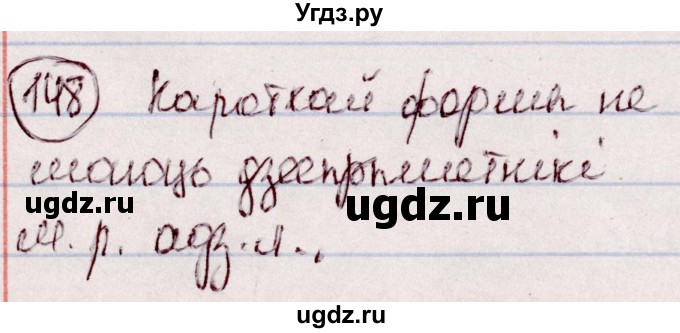 Угдз.ру
148 Кароткай формы не
маюць дзеепрыметнікі
угдз.ru
угдз.ru
м. р. адз. л.,
угдз.ru